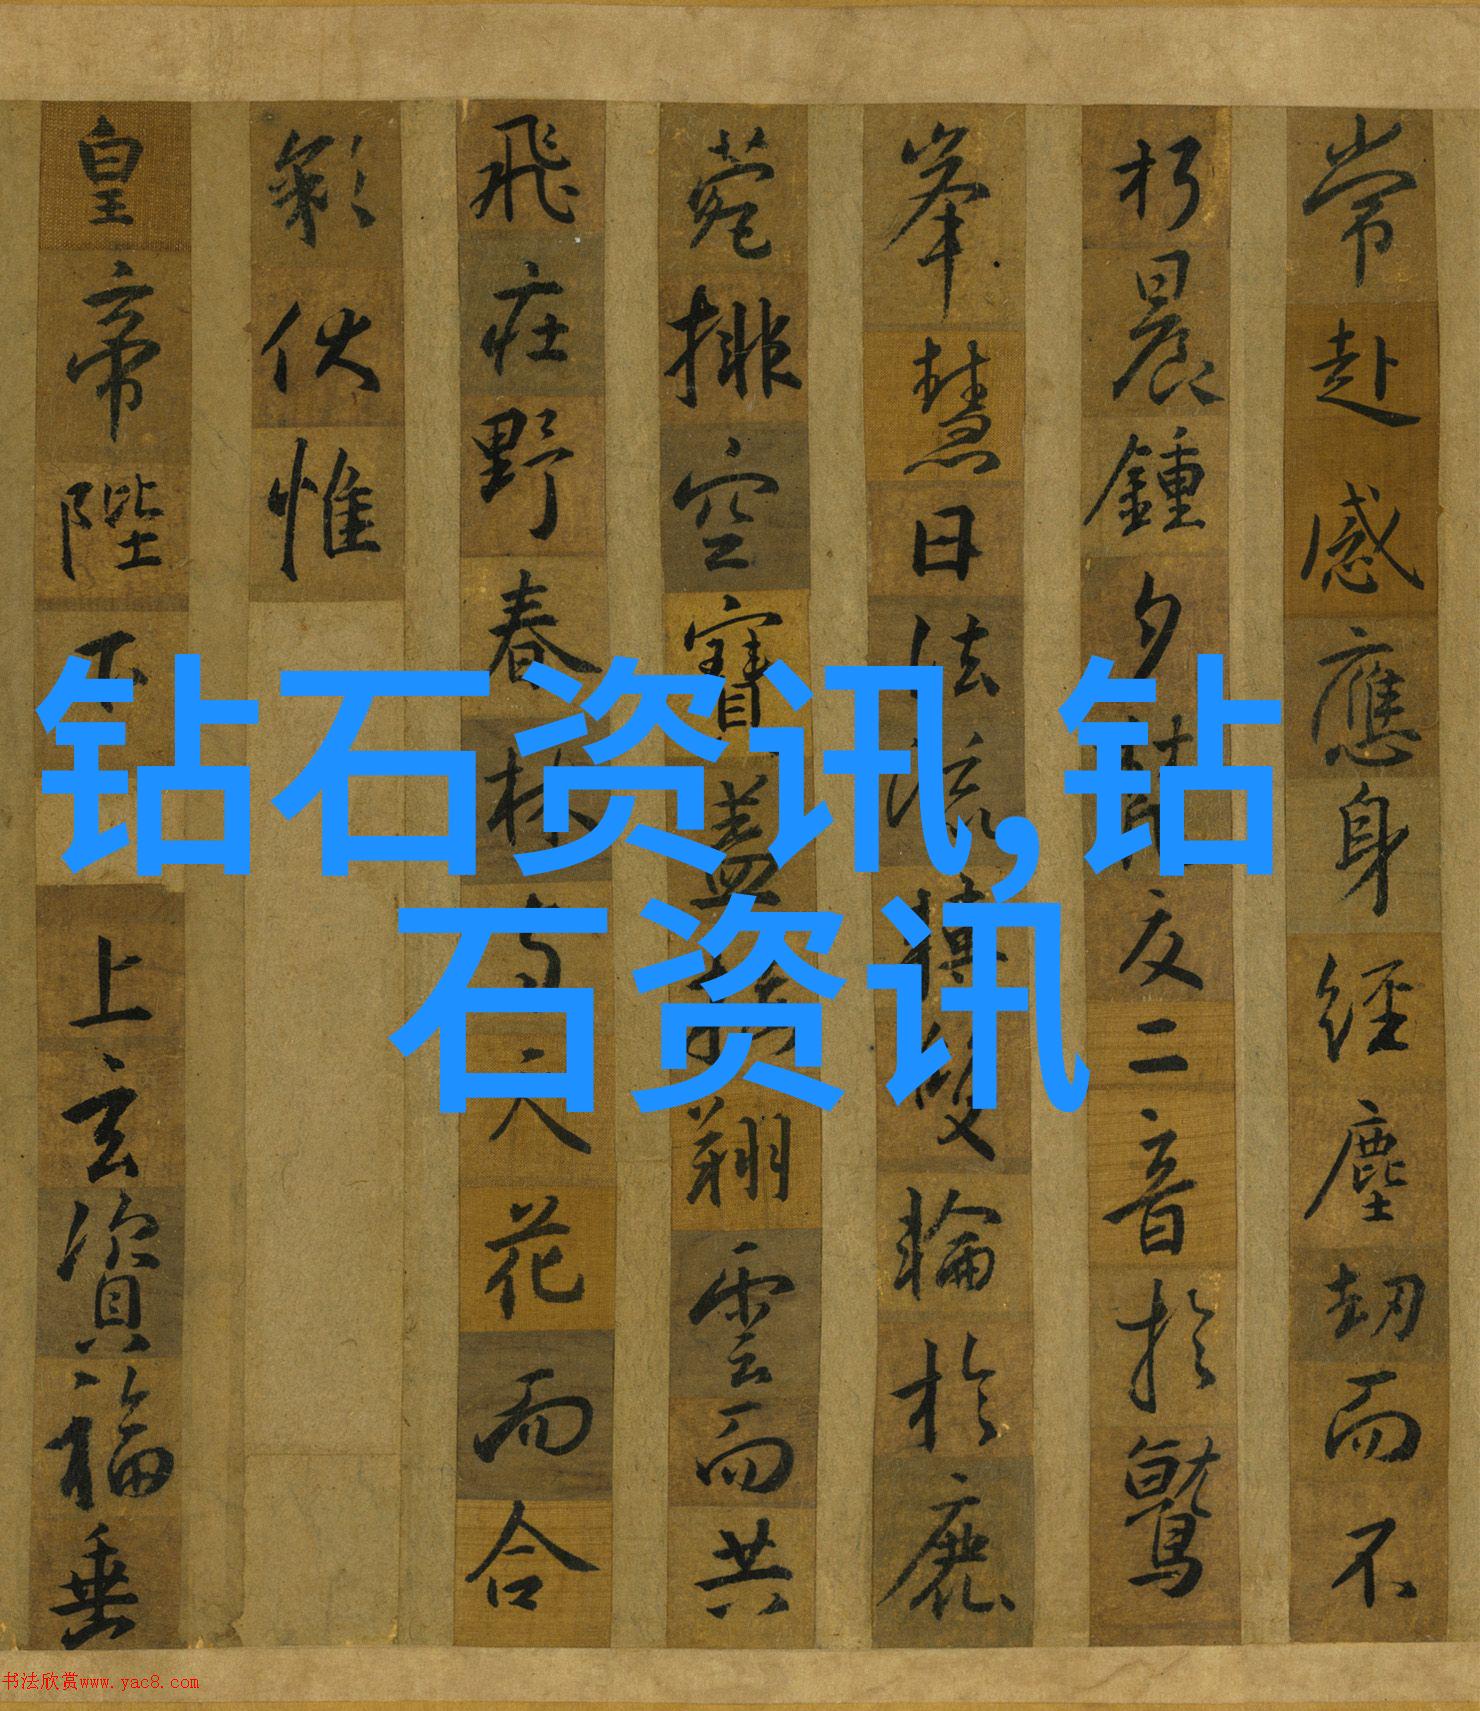 常赴感應身經塵劫而不
朽晨鍾夕梵交二音於鷲
峯慧日法流轉雙輪於鹿
菀排空寶蓋接翔雲而共
飛莊野春林與天花而合
彩伏惟
皇帝陛下上玄資福垂
钻石资讯,钻
石资讯
书法欣赏www.yac8.com